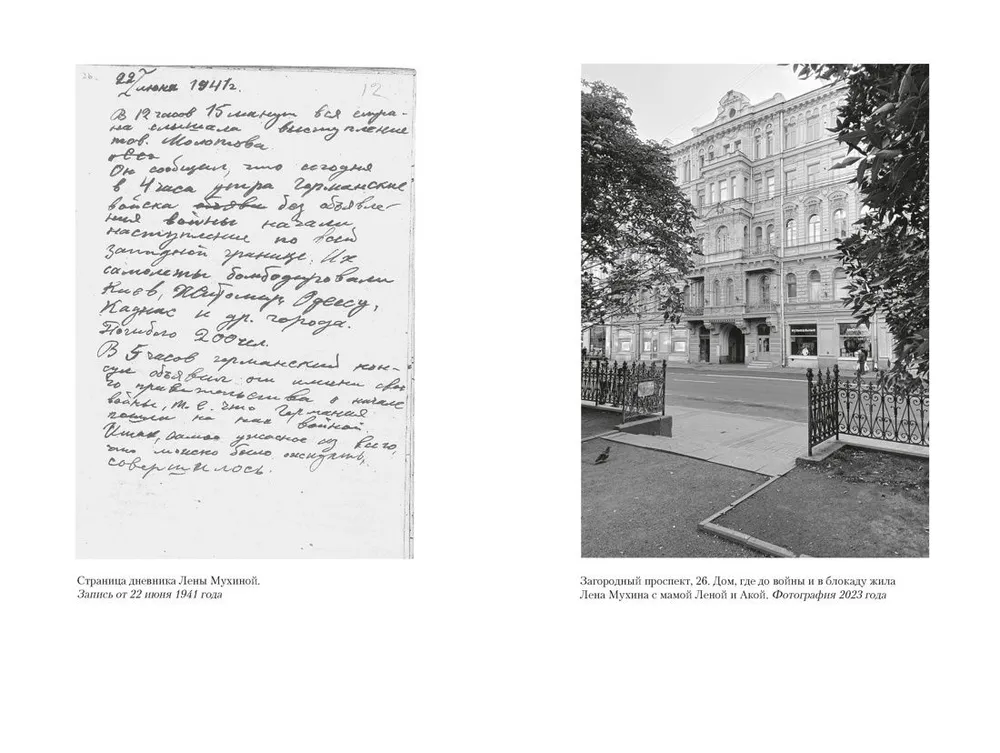 36.
22/
июня 1941г.
12
В 12 часов 15 минут вся стра-
на слышала выступление
тов. Молотова.
Он сообщил, что сегодня
в 4 часа утра германские
войска объяви без объявле-
ния войны начали
наступление по всей
западной границе. Их
самолёты бомбардировали
Киев, Житомир, Одессу,
Каунас и др. города.
Погибло 200 чел.
В 5 часов германский кон-
сул объявил от имени свое-
го правительства о начале
войны, т. е. что Германия
пошла на нас войной.
Итак, самое ужасное из всего,
что можно было ожидать,
совершилось.
Страница дневника Лены Мухиной.
Запись от 22 июня 1941 года
МУЗЫКАЛЬНЫЕ
Загородный проспект, 26. Дом, где до войны и в блокаду жила
Лена Мухина с мамой Леной и Акой. Фотография 2023 года